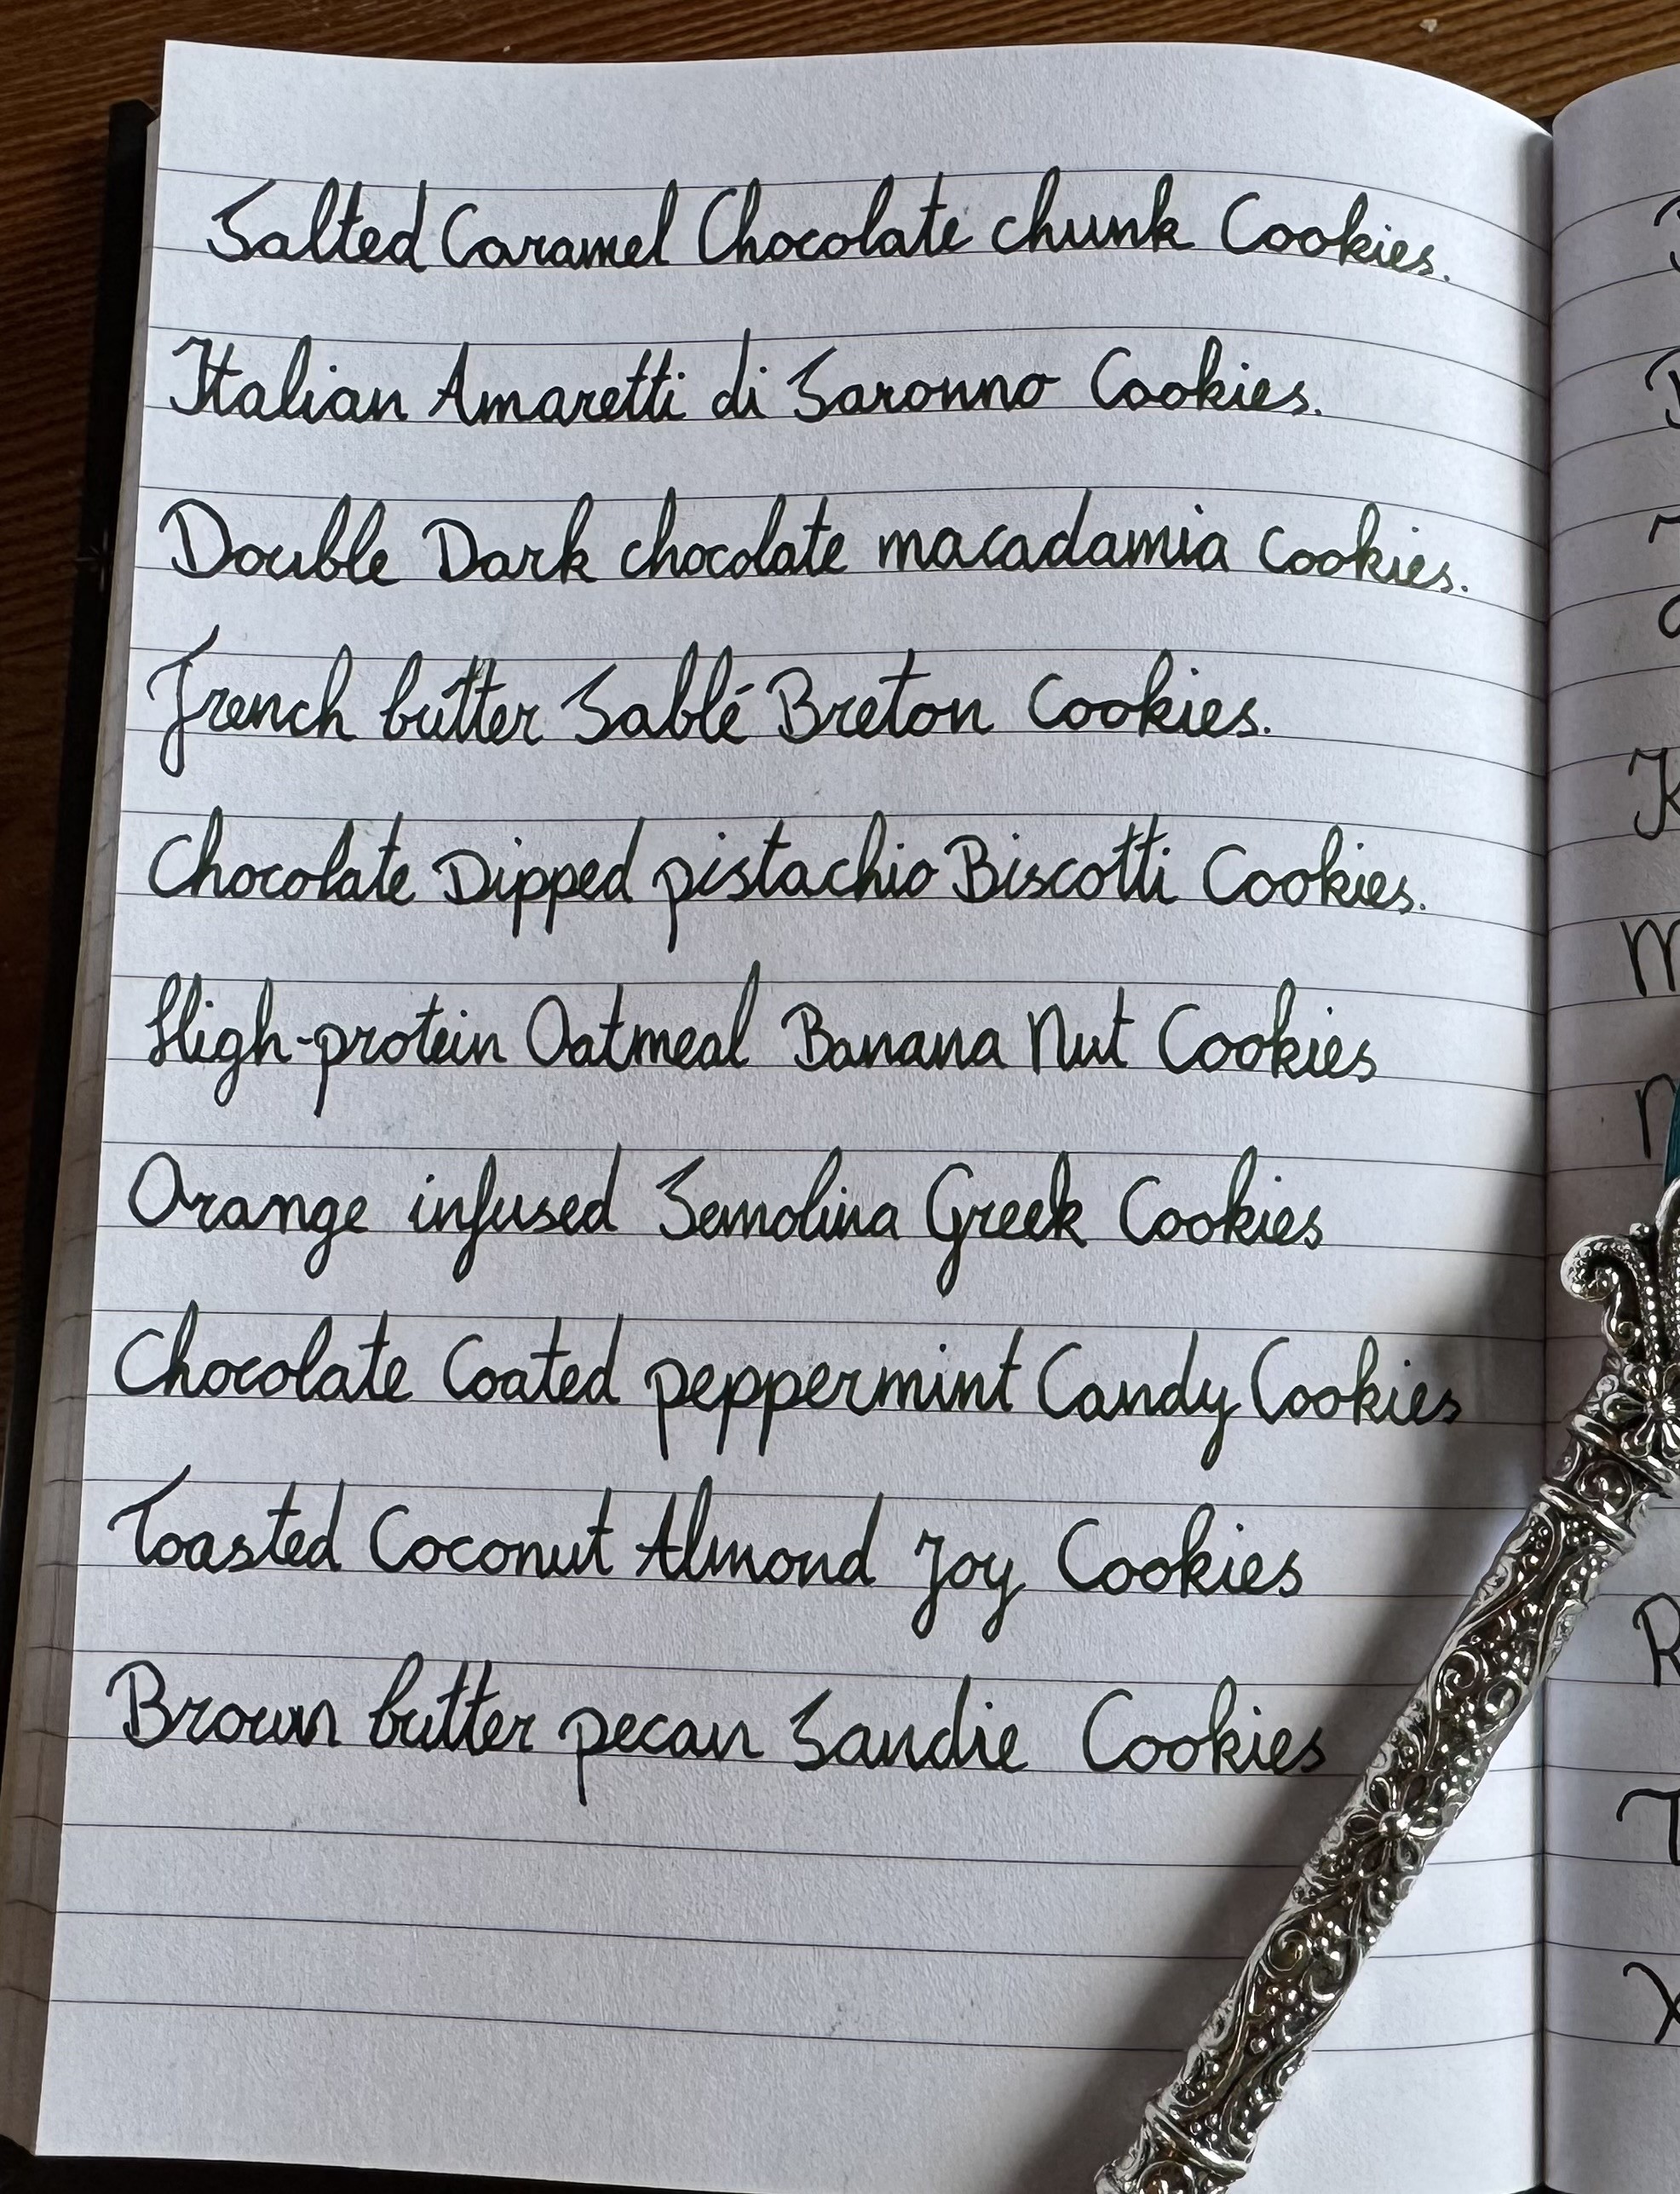 Salted Caramel Chocolate chunk Cookies.
Italian Amaretti di Saronno Cookies.
Double Dark chocolate macadamia Cookies.
French butter Sablé Breton Cookies.
Chocolate Dipped pistachio Biscotti Cookies.
High-protein Oatmeal Banana Nut Cookies
Orange infused Semolina Greek Cookies
Chocolate Coated peppermint Candy Cookies
Toasted Coconut Almond Joy Cookies
Brown butter pecan Sandie Cookies